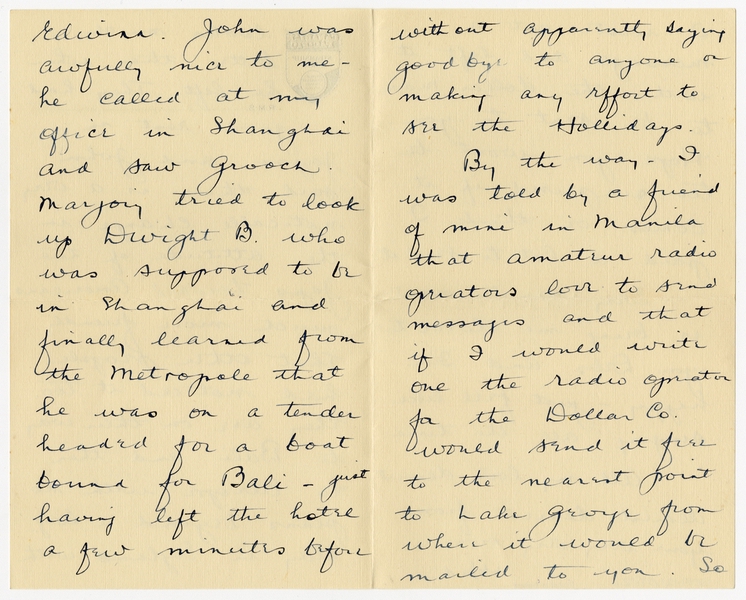 Edwina. John was
awfully nice to me -
he called at my
office in Shanghai
and saw Grooch.
Marjory tried to look
up Dwight B. who
was supposed to be
in Shanghai and
finally learned from
the Metropole that
he was on a tender
headed for a boat
bound for Bali - just
having left the hotel
a few minutes before
without apparently saying
goodbye to anyone or
making any effort to
see the Hollidays.
By the way - I
was told by a friend
of mine in Manila
that amateur radio
operators love to send
messages and that
if I would write
one the radio operator
for the Dollar Co.
would send it free
to the nearest point
to Lake George from
where it would be
mailed to you. So